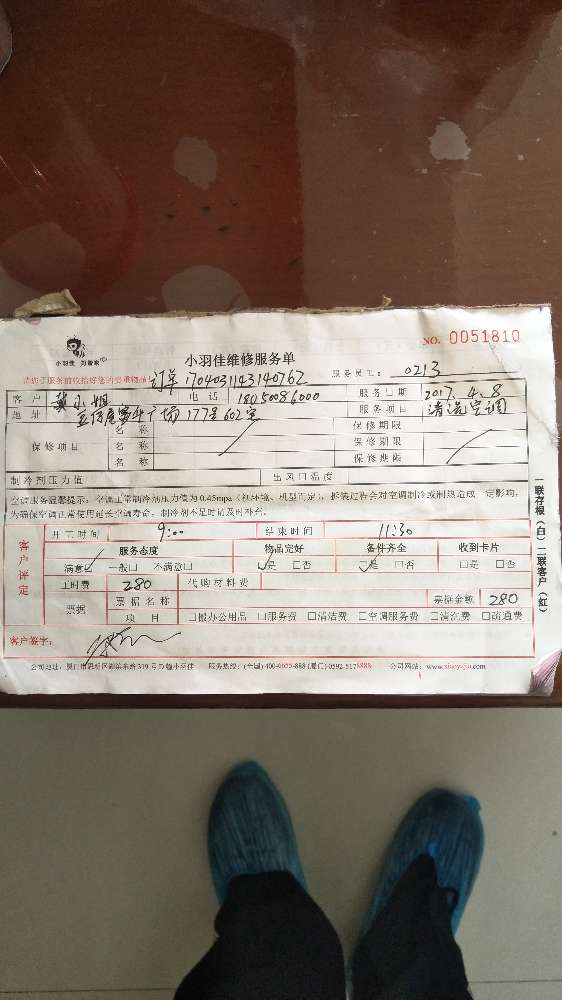 小羽佳 刘管家
NO. 0051810
小羽佳维修服务单
请您于服务前收拾好您的贵重物品 订单 170403114314076Z 服务员工: 0213
客户 黄小姐 电话 18050086000 服务日期 2017.4.8
地址 177号602室 服务项目 清洗空调
保修项目 名称 保修期限
名称 保修期限
名称 保修期限
制冷剂压力值 出风口温度
空调服务温馨提示: 空调正常制冷剂压力值为0.45mpa (视环境、机型而定), 拆装过程会对空调制冷或制热造成一定影响,
为确保空调正常使用延长空调寿命, 制冷剂不足时请及时补充。
客户评定 开工时间 9:00 结束时间 11:30
服务态度 物品完好 备件齐全 收到卡片
满意 一般 不满意 是 否 是 否 是 否
工时费 280 代购材料费
票据 票据名称 票据金额 280
项目 搬办公用品 服务费 清洁费 空调服务费 清洗费 疏通费
客户签字:
公司地址: 厦门市思明区湖滨东路319号 小羽佳 服务热线: (全国) 400-6655-888 (厦门) 0592-5178888 公司网站: www.xiaoyujia.com
一联存根(白) 二联客户(红)